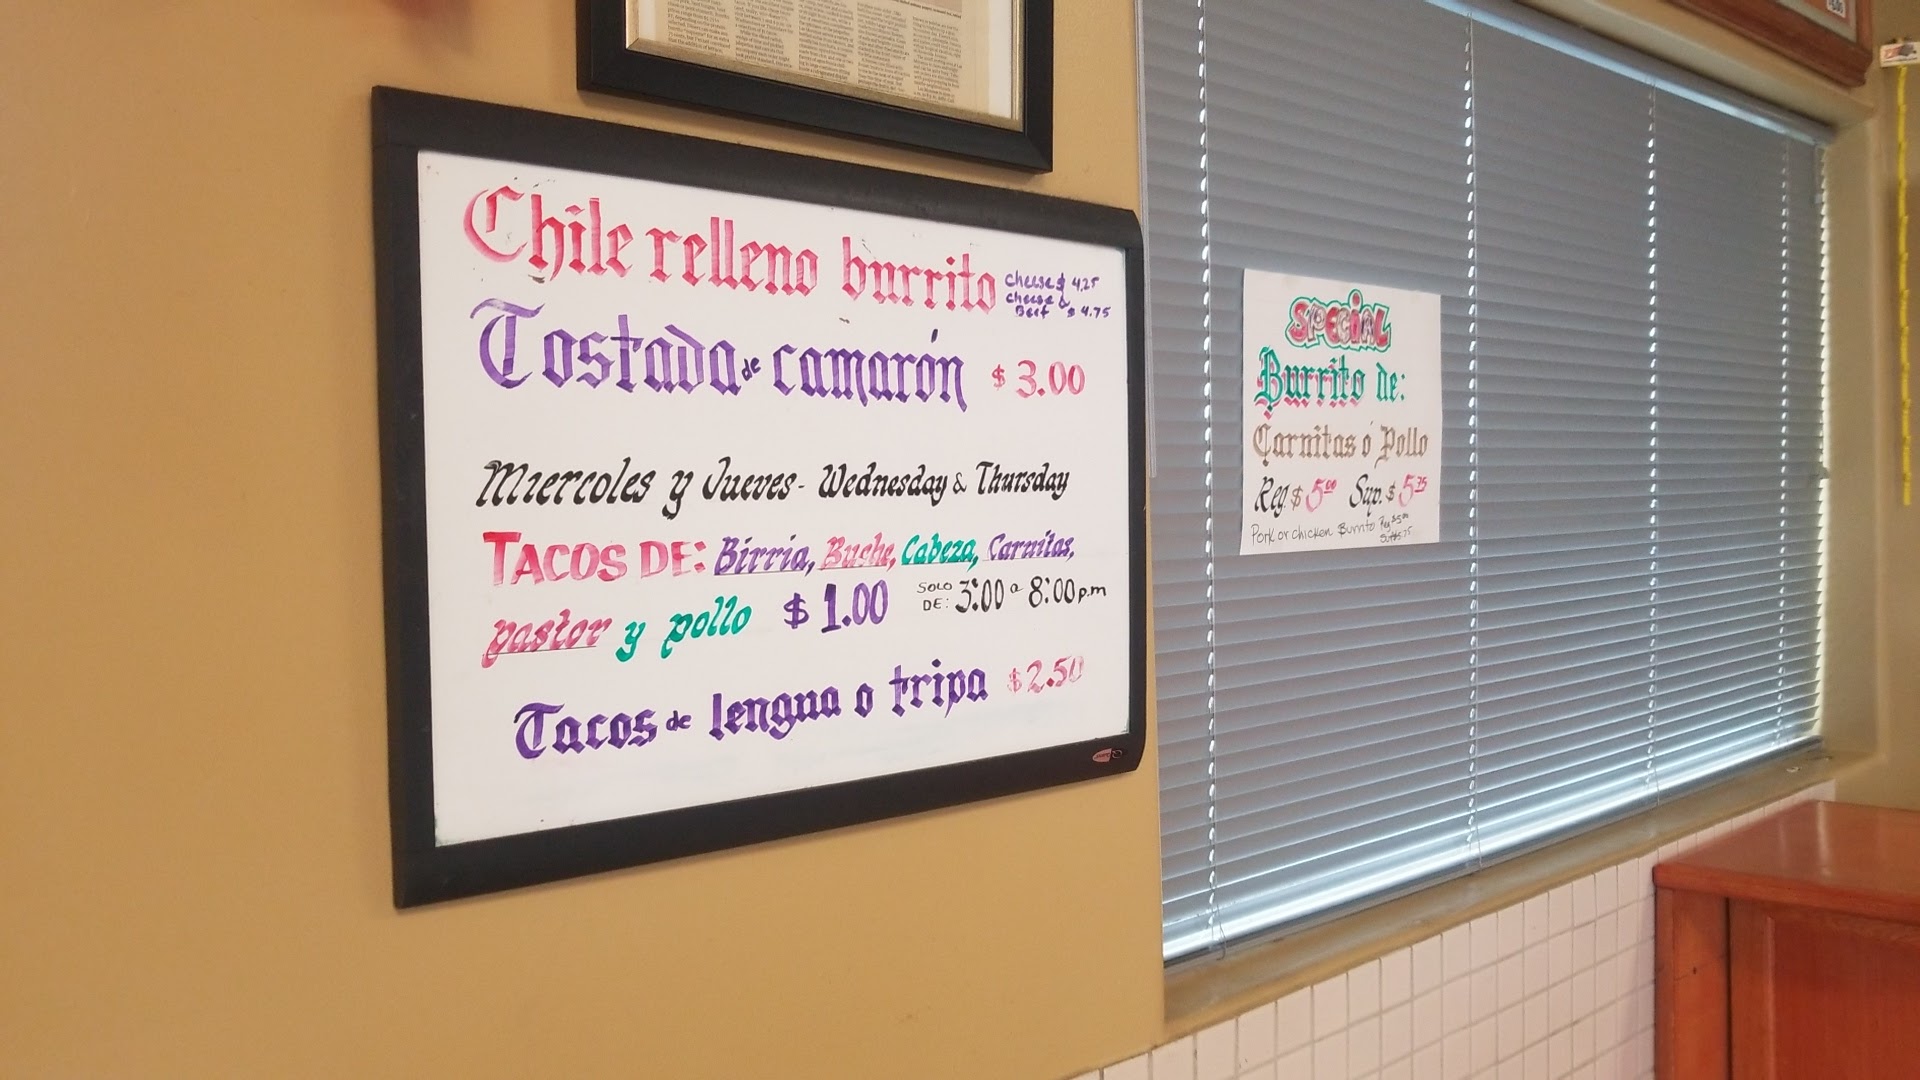 Chile relleno burrito
Cheese $ 4.25
Cheese &
Beef $ 4.75
Tostada de camarón $ 3.00
Miercoles y Jueves - Wednesday & Thursday
TACOS DE: Birria, Buche, Cabeza, Carnitas,
pastor y pollo $ 1.00
SOLO
DE: 3:00 a 8:00 p.m
Tacos de lengua o tripa $ 2.50
SPECIAL
Burrito de:
Carnitas ó Pollo
Reg. $ 5.00 Sup. $ 5.75
Pork or chicken Burrito